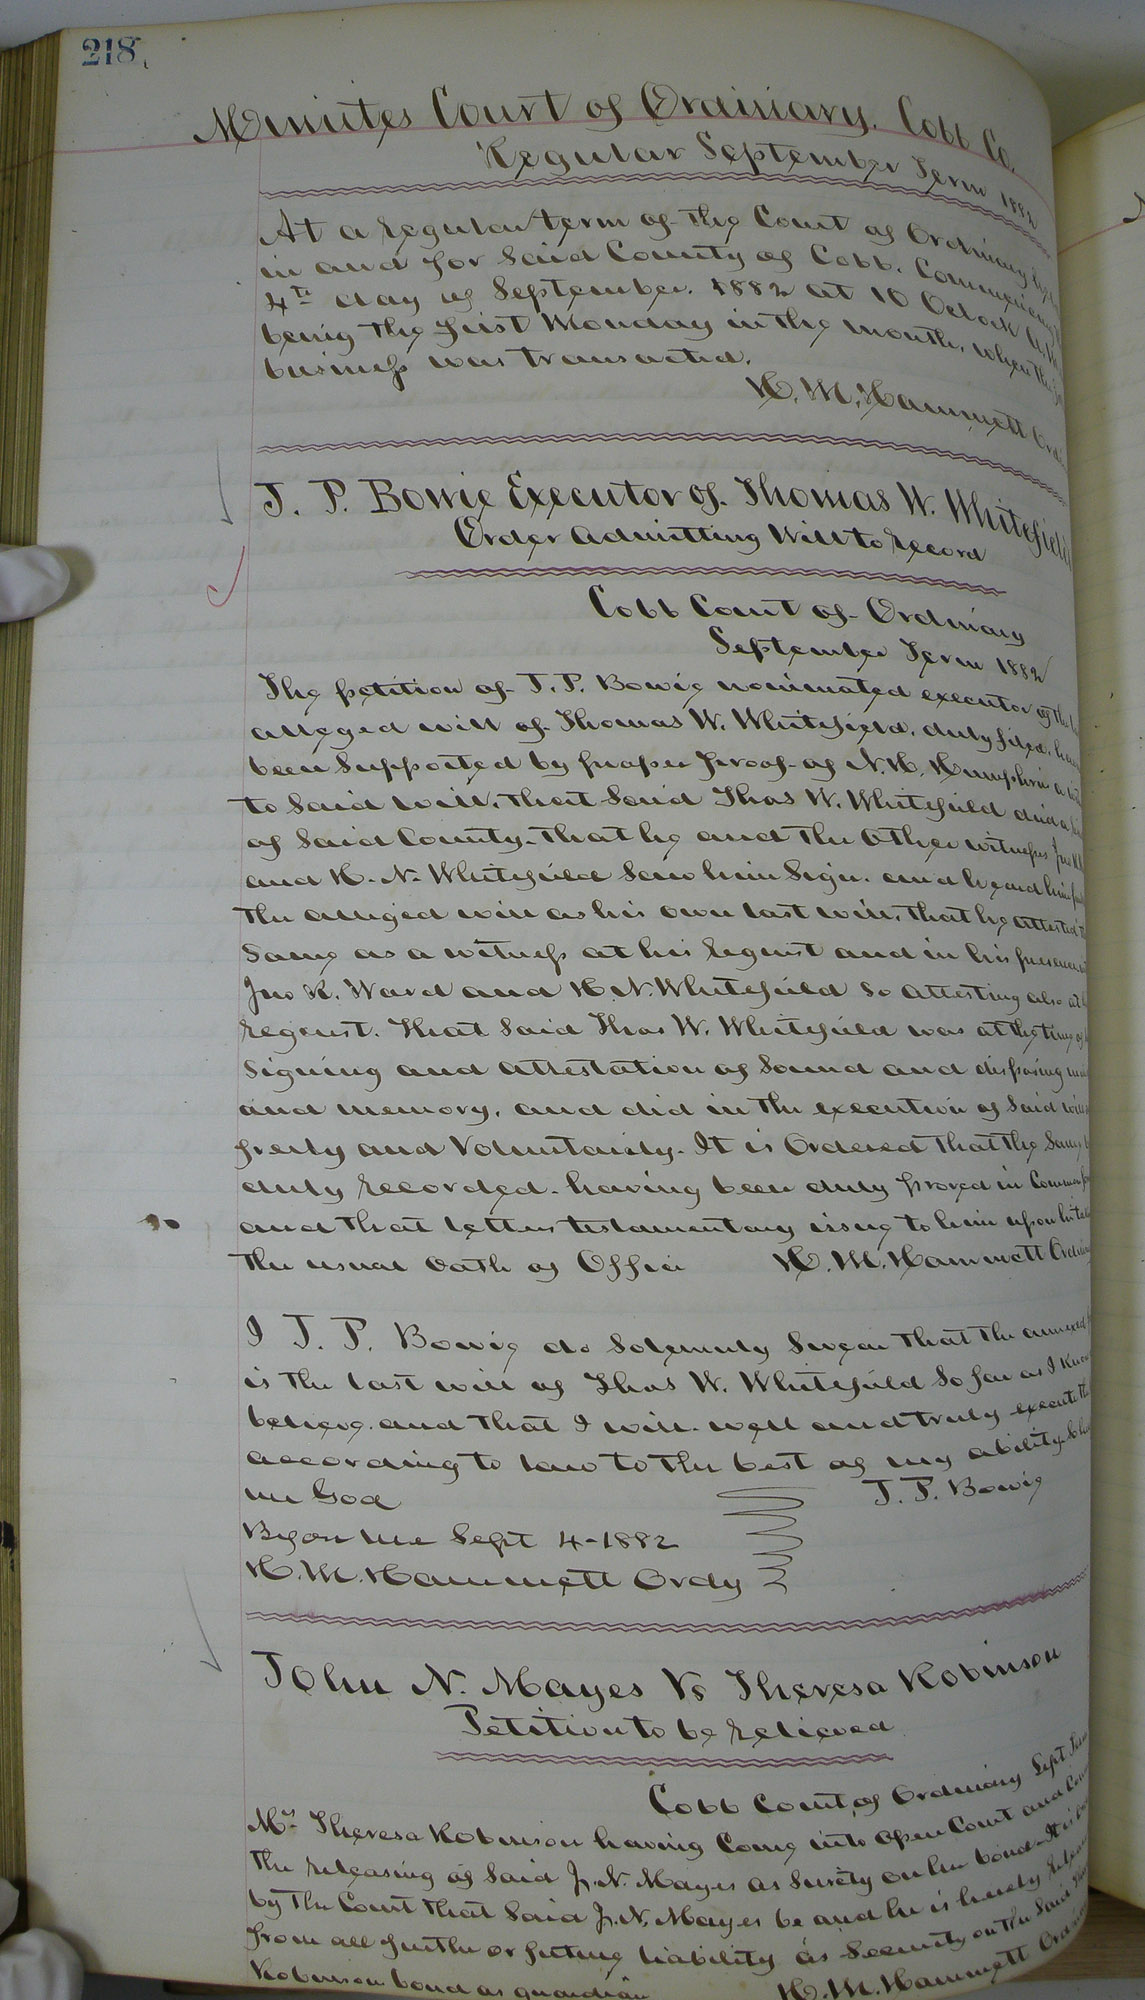 218
Minutes Court of Ordinary. Cobb Co.
Regular September Term 1882
At a regular term of the Court of Ordinary
in and for said County of Cobb. Commencing
4th day of September. 1882 at 10 Oclock A.M.
being the first Monday in the month, when the
business was transacted.
H. M. Hammett
J. P. Bowie Executor of. Thomas W. Whitefield
Order admitting Will to record
Cobb Court of Ordinary
September Term 1882
The petition of J. P. Bowie nominated executor of the
alleged will of Thomas W. Whitefield, duly filed,
been supported by proper proof of N. H. Humphries a
to said will, that said Thos W. Whitefield died a
of said County, that he and the other witnesses Jno
and H. N. Whitefield saw him sign. and heard him
the alleged will as his own last will, that he attested
same as a witness at his request and in his presence
Jno R. Ward and H N. Whitefield so attesting also at
request. That said Thos W. Whitefield was at the time of
signing and attestation of sound and disposing
and memory, and did in the execution of said will
freely and Voluntarily. It is Ordered that the same
duly recorded. having been duly proved in Common
and that letters testamentary issue to him upon his
the usual oath of Office H. M. Hammett
I J. P. Bowie do solemnly swear that the annexed
is the last will of Thos W. Whitefield so far as I know
believe. and that I will. well and truly execute the
according to law to the best of my ability.
me God J. P. Bowie
Before me Sept 4-1882
H. M. Hammett Ordy
John N. Mayes Vs Theresa Robinson
Petition to be relieved
Cobb Court of Ordinary Sept
Mrs Theresa Robinson having come into open Court and
the releasing of said J. N. Mayes as surety on her bond. It is
by the Court that said J. N. Mayes be and he is hereby
from all further or future liability as security on the said
Robinson bond as guardian
H. M. Hammett